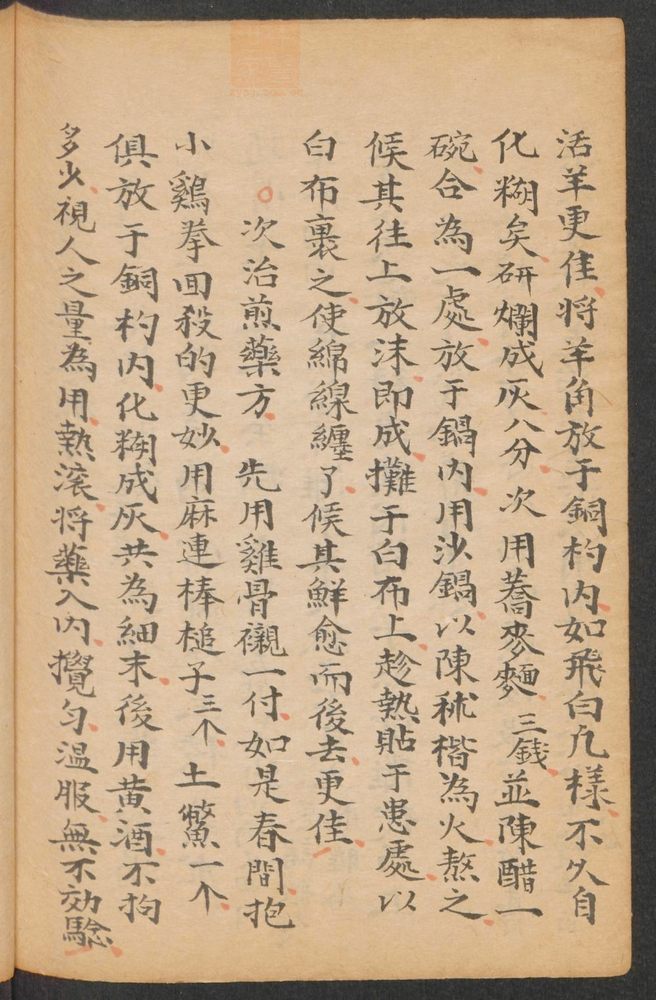 活羊更佳将羊角放于銅杓内如飛白凡樣不久自
化糊矣研爛成灰八分次用蕎麥麵三銭並陳醋一
碗合為一處放于鍋内用沙鍋以陳秫楷為火熬之
候其往上放沫即成攤于白布上趁熱貼于患處以
白布裹之使綿線纏了候其鮮愈而後去更佳
○次治煎藥方 先用雞骨襯一付如是春間抱
小鷄拳回殺的更妙用麻連棒槌子三个土鱉一个
俱放于銅杓内化糊成灰共為細末後用黄酒不拘
多少視人之量為用熱滚将藥入内攪匀温服無不効騐